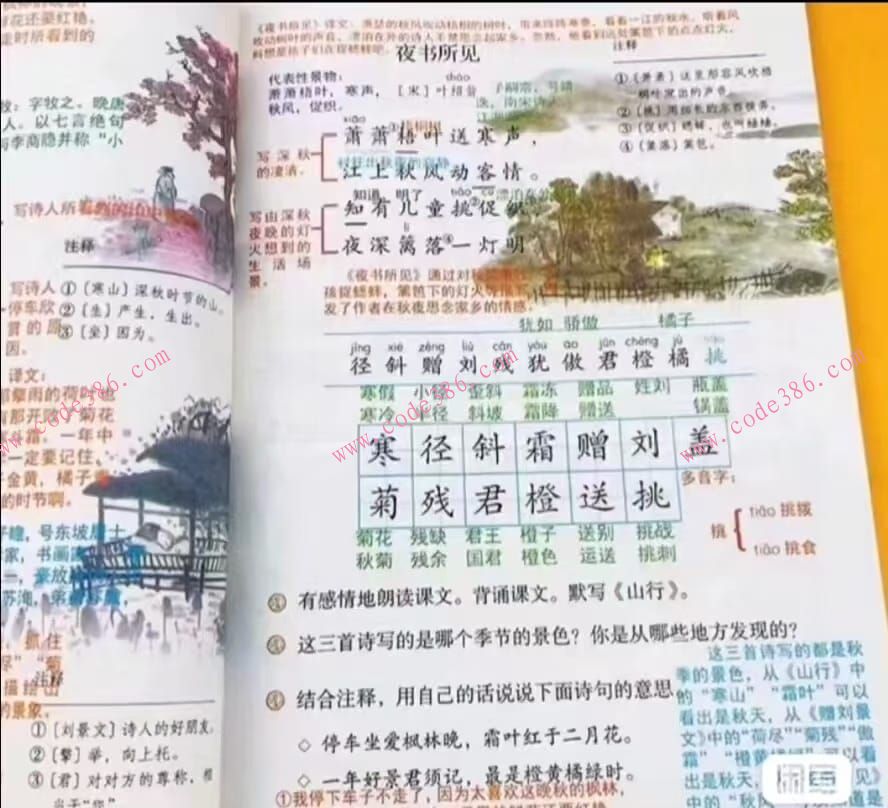 花还要红艳。
走时所看到的
牧：字牧之。晚唐
人。以七言绝句
与李商隐并称“小
写诗人所看到的
注释
写诗人
停车欣
赏的原
因。
①〔寒山〕深秋时节的山。
②〔生〕产生，生出。
③〔坐〕因为。
译文：
那擎雨的荷叶也
有那开败了菊花
寒霜，一年中
一定要记住，
金黄，橘子青
的时节啊。
号东坡居士
家，书画
注释
的景象。
①〔刘景文〕诗人的好朋友，
②〔擎〕举，向上托。
③〔君〕对对方的尊称，相
当于“您”
《夜书所见》课文：萧瑟的秋风吹动梧桐的树叶，带来阵阵寒意，看着一江的秋水，听着风
吹动树叶的声音，漂泊在外的诗人不禁思念起家乡。忽然，他看到远处篱笆下的点点灯火，
料想是孩子们在捉蟋蟀吧。
夜书所见
代表性景物：
萧萧梧叶，寒声，
秋风，促织。
shào
〔宋〕叶绍翁
注释
①〔萧萧〕这里形容风吹梧
桐叶发出的声音。
②〔挑〕用细长的东西拨弄。
③〔促织〕蟋蟀，也叫蛐蛐。
④〔篱落〕篱笆。
写深秋
的凄清。
萧萧梧叶送寒声，
江上秋风动客情。
知道，明了
写由深秋
夜晚的灯
火想到的
生活场
景。
知有儿童挑促织，
夜深篱落一灯明
《夜书所见》通过对
孩捉蟋蟀，篱笆下的灯火等描写
发了作者在秋夜思念家乡的情感。
犹如 骄傲 橘子
jìng xié zèng liú cán yóu ào jūn chéng jú
径 斜 赠 刘 残 犹 傲 君 橙 橘 挑
寒假 小径 歪斜 霜冻 赠品 姓刘 瓶盖
寒冷 半径 斜坡 霜降 赠送 锅盖
寒 径 斜 霜 赠 刘 盖
菊 残 君 橙 送 挑
菊花 残缺 君王 橙子 送别 挑战
秋菊 残余 国君 橙色 运送 挑刺
多音字：
挑
tiǎo 挑拨
tiāo 挑食
有感情地朗读课文。背诵课文。默写《山行》。
这三首诗写的是哪个季节的景色？你是从哪些地方发现的？
结合注释，用自己的话说说下面诗句的意思
◇ 停车坐爱枫林晚，霜叶红于二月花。
◇ 一年好景君须记，最是橙黄橘绿时。
①我停下车子不走了，因为太喜欢这晚秋的枫林，
这三首诗写的都是秋
季的景色，从《山行》中
的“寒山”“霜叶”可以
看出是秋天，从《赠刘景
文》中的“荷尽”“菊残”“傲
霜”“橙黄橘绿”可以看
www.code386.com
www.code386.com
www.code386.com
闲鱼